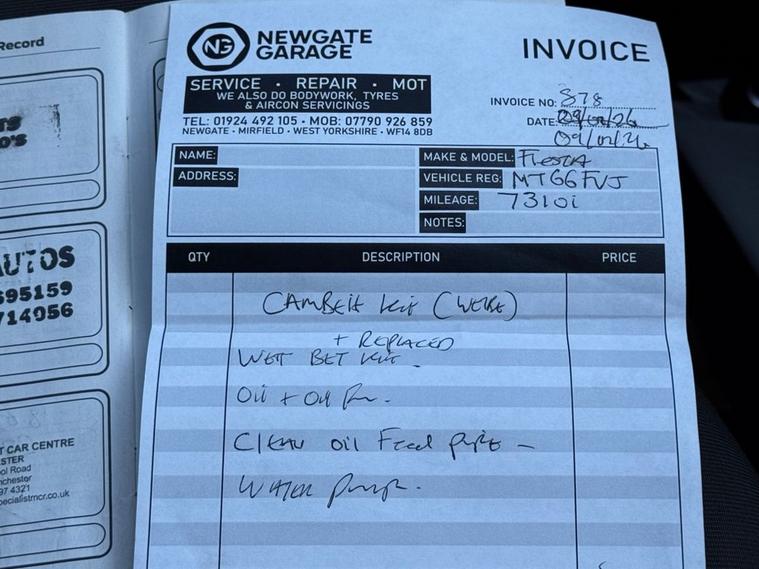 Record
NEWGATE
GARAGE
NG
INVOICE
SERVICE · REPAIR · MOT
WE ALSO DO BODYWORK, TYRES
& AIRCON SERVICINGS
TEL: 01924 492 105 · MOB: 07790 926 859
NEWGATE · MIRFIELD · WEST YORKSHIRE · WF14 8DB
INVOICE NO: 878
DATE:
NAME:
ADDRESS:
MAKE & MODEL: Fiesta
VEHICLE REG: MT66FVJ
MILEAGE: 73101
NOTES:
QTY DESCRIPTION PRICE
CAMBELT Kit
+ REPLACED
WET BET Kit.
Oil + Oil
CLEAN OIL Feed pipe –
WATER Pump.
O'S
AUTOS
695159
714056
T CAR CENTRE
STER
ol Road
nchester
97 4321
pecialistmcr.co.uk